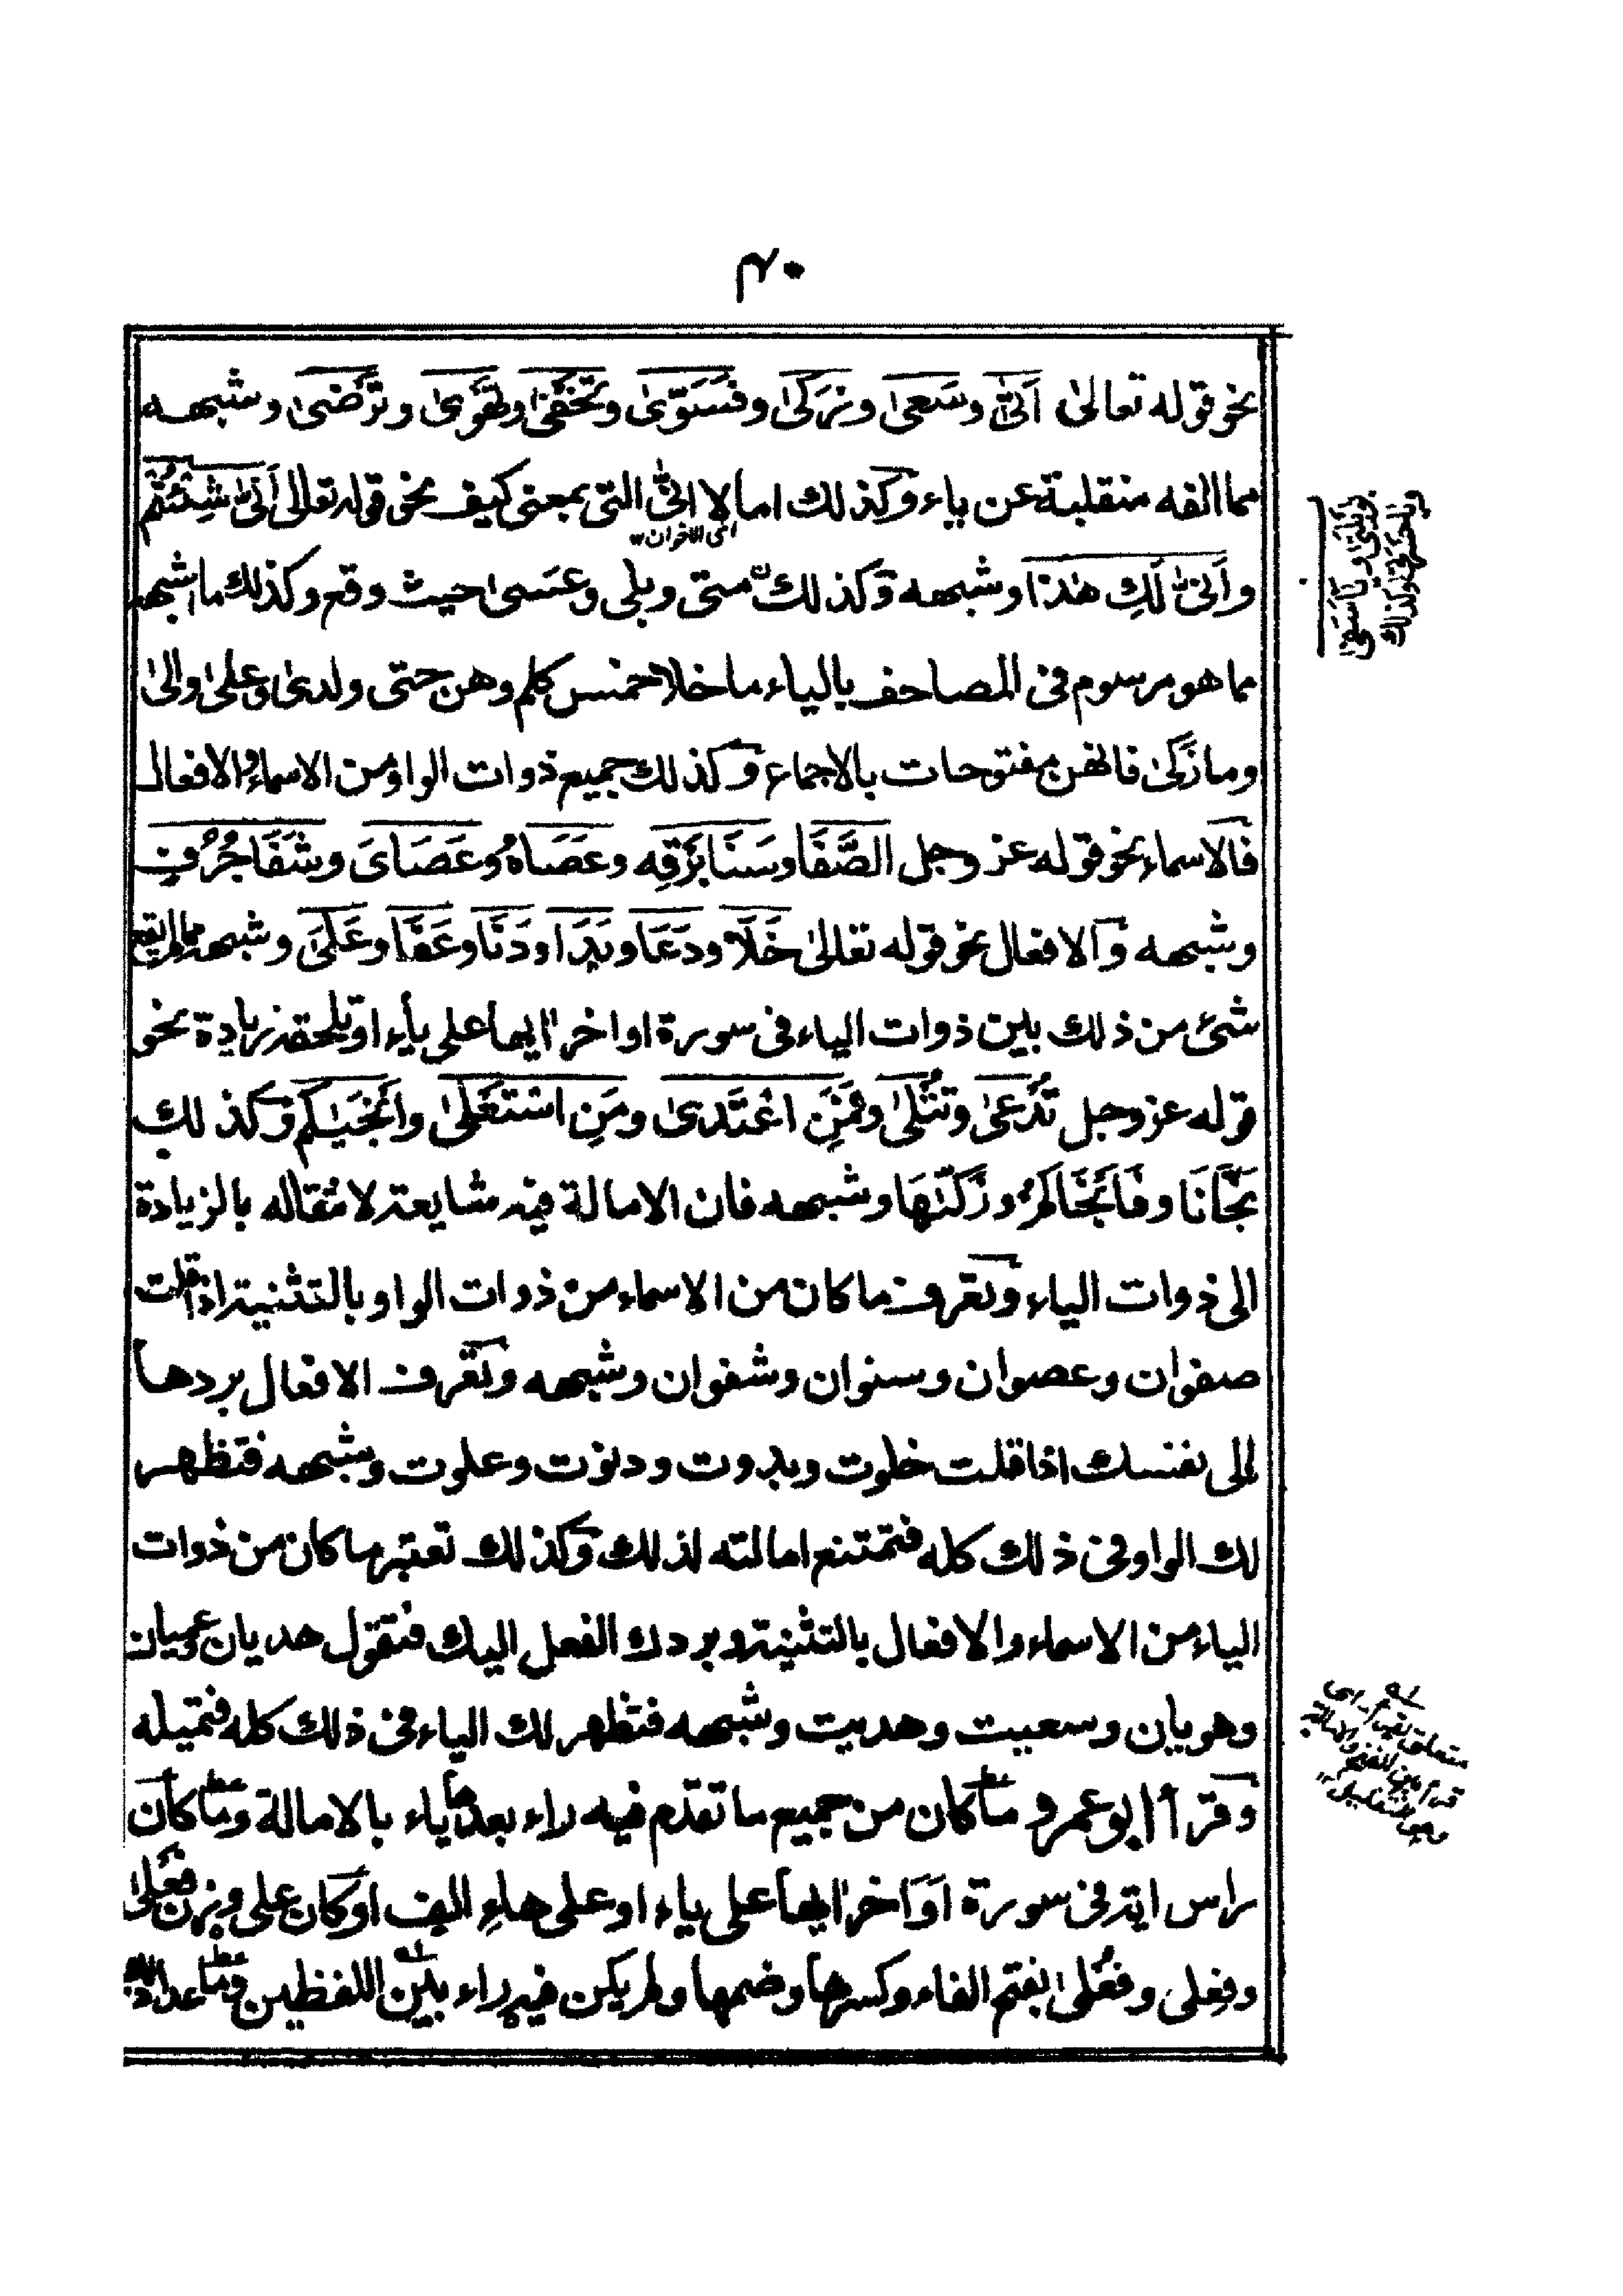 ٤٠
نحو قوله تعالى اَتىٰ وسَعىٰ وزَكىٰ وفَسَوّىٰ وتَخفىٰ وتهوَىٰ وترضىٰ وشبهه
مما الفه منقلبة عن ياء وكذلك امالا انىّٰ التى بمعنى كيف نحو قوله تعالى اَنّىٰ شِئتُم
اى الاخوان
واَنىّٰ لَكِ هٰذا وشبهه وكذلك متى وبلى وعَسىٰ حيث وقع وكذلك ما اشبهه
مما هو مرسوم فى المصاحف بالياء ما خلا خمس كلم وهن حتى ولدىٰ وعلىٰ والىٰ
وما زَكىٰ فانهن مفتوحات بالاجماع وكذلك جميع ذوات الواو من الاسماء والافعال
فالاسماء نحو قوله عز وجل الصَّفَا وسَنَا بَرْقِه وعَصَاهُ وعَصَاىَ وشَفَا جُرُفٍ
وشبهه والافعال نحو قوله تعالىٰ خَلَا ودَعَا وبَدَا ودَنَا وعَفَا وعَلَىَ وشبهه ما لم يقع
شئ من ذلك بين ذوات الياء فى سورة اواخر ايها على ياء او تلحقه زيادة نحو
قوله عز وجل تُدْعىٰ وتُتْلىٰ وفَمَنِ اعْتَدىٰ ومَنِ اسْتَعْلىٰ وانْجَيٰكم وكذلك
نَجَّانَا وفَاَنْجَاكم وزَكّٰهَا وشبهه فان الامالة فيه شايعة لانتقاله بالزيادة
الى ذوات الياء وتعرف ما كان من الاسماء من ذوات الواو بالتثنية اذا قلت
صفوان وعصوان وسنوان وشفوان وشبهه وتعرف الافعال بردها
الى نفسك اذا قلت خلوت وبدوت ودنوت وعلوت وشبهه فتظهر
لك الواو فى ذلك كله فتمتنع امالته لذلك وكذلك تعتبر ما كان من ذوات
الياء من الاسماء والافعال بالتثنية وبردك الفعل اليك فتقول هديان وعميان
وهويان وسعيت وهديت وشبهه فتظهر لك الياء فى ذلك كله فتميله
وقرأ ابو عمرو ما كان من جميع ما تقدم فيه راء بعدها ياء بالامالة وما كان
راس اية فى سورة اواخر ايها على ياء او على هاء الف او كان على وزن فَعلىٰ
وفِعلى وفُعلىٰ بفتح الفاء وكسرها وضمها ولم يكن فيه راء بين اللفظين وما عدا
يٰويلتىٰ ويٰاسفىٰ
ويٰحسرتىٰ وكذلك
اى
متعلق بقرأ
قرأ بين الفتح والامالة
وهى التقليل